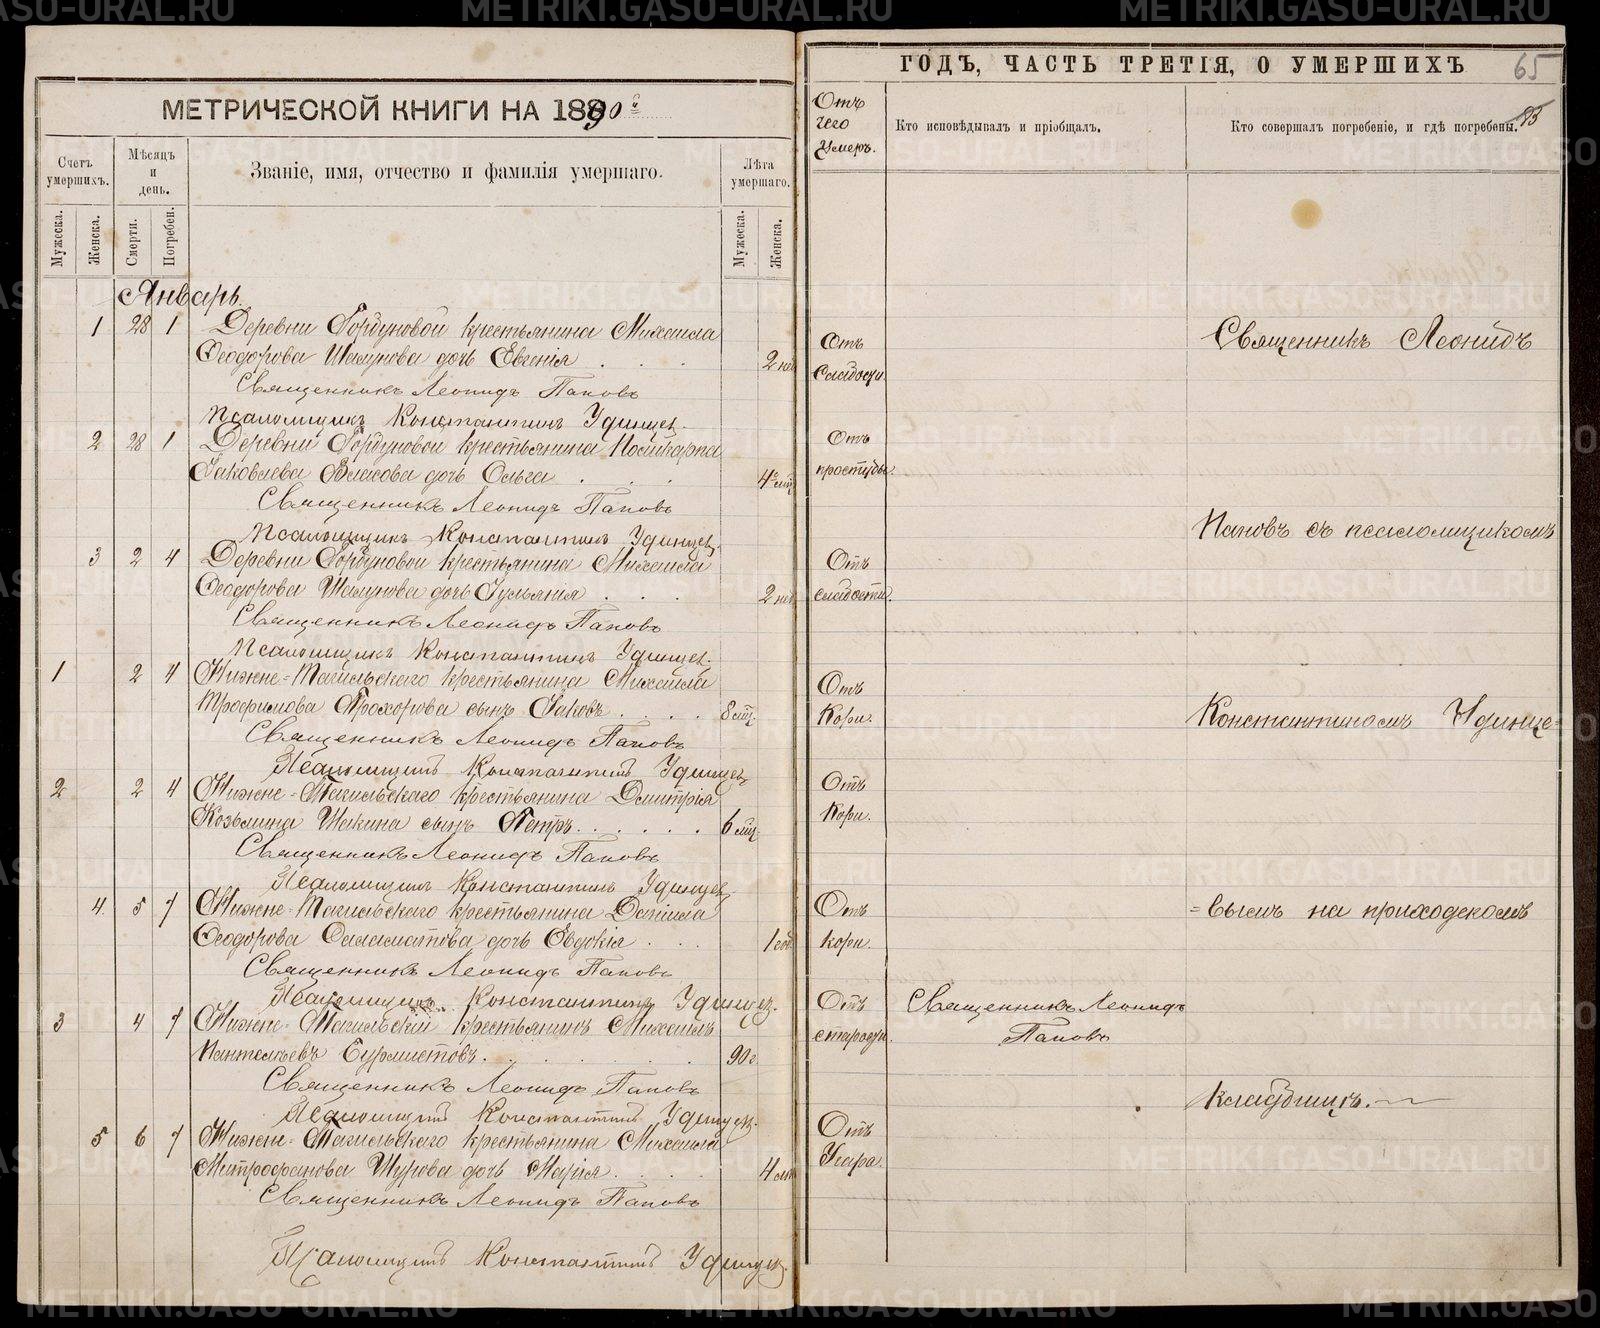 МЕТРИЧЕСКОЙ КНИГИ НА 1890 г.
Счетъ умершихъ.
Мужеска.
Женска.
Мѣсяцъ и день.
Смерти.
Погребен.
Званіе, имя, отчество и фамилія умершаго.
Лѣта умершаго.
Мужеска.
Женска.
Январь.
1 28 1 Деревни Горбуновой крестьянина Михаила
Ѳеодорова Шамунова дочь Евгенія . . . 2 нед.
Священникъ Леонидъ Паповъ
Псаломщикъ Константинъ Удинцев.
2 28 1 Деревни Горбуновой крестьянина Поликарпа
Іаковлева Власова дочь Ольга . . . 4 мѣс.
Священникъ Леонидъ Паповъ
Псаломщикъ Константинъ Удинцев.
3 2 4 Деревни Горбуновой крестьянина Михаила
Ѳеодорова Шамунова дочь Іуліанія . . . 2 нед.
Священникъ Леонидъ Паповъ
Псаломщикъ Константинъ Удинцев.
1 2 4 Нижне-Тагильскаго крестьянина Михаила
Трофимова Прохорова сынъ Іаковъ . . . . 8 мѣс.
Священникъ Леонидъ Паповъ
Псаломщикъ Константинъ Удинцев
2 2 4 Нижне-Тагильскаго крестьянина Димитрія
Козьмина сынъ Петръ . . . . . . 6 мѣс.
Священникъ Леонидъ Паповъ
Псаломщикъ Константинъ Удинцев.
4. 5 7 Нижне-Тагильскаго крестьянина Даніила
Ѳеодорова Саламатова дочь Евдокія . . . 1 год.
Священникъ Леонидъ Паповъ
Псаломщикъ Константинъ Удинцев.
3 4 7 Нижне-Тагильскій крестьянинъ Михаилъ
Пантелѣевъ Бурмистовъ . . . . . . 90 г.
Священникъ Леонидъ Паповъ
Псаломщикъ Константинъ Удинцев.
5 6 7 Нижне-Тагильскаго крестьянина Михаила
Митрофанова Шурова дочь Марія . . . . 4 лѣт.
Священникъ Леонидъ Паповъ
Псаломщикъ Константинъ Удинцев.
ГОДЪ, ЧАСТЬ ТРЕТІЯ, О УМЕРШИХЪ
65
93
Отъ чего умеръ.
Кто исповѣдывалъ и пріобщалъ.
Кто совершалъ погребеніе, и гдѣ погребены.
Отъ
слабости.
Отъ
простуды.
Отъ
слабости.
Отъ
Кори.
Отъ
Кори.
Отъ
кори.
Отъ
старости.
Отъ
Угара.
Священникъ Леонидъ
Паповъ
Священникъ Леонидъ
Паповъ съ псаломщикомъ
Константиномъ Удинце=
=вымъ на приходскомъ
кладбищѣ.
METRIKI.GASO-URAL.RU